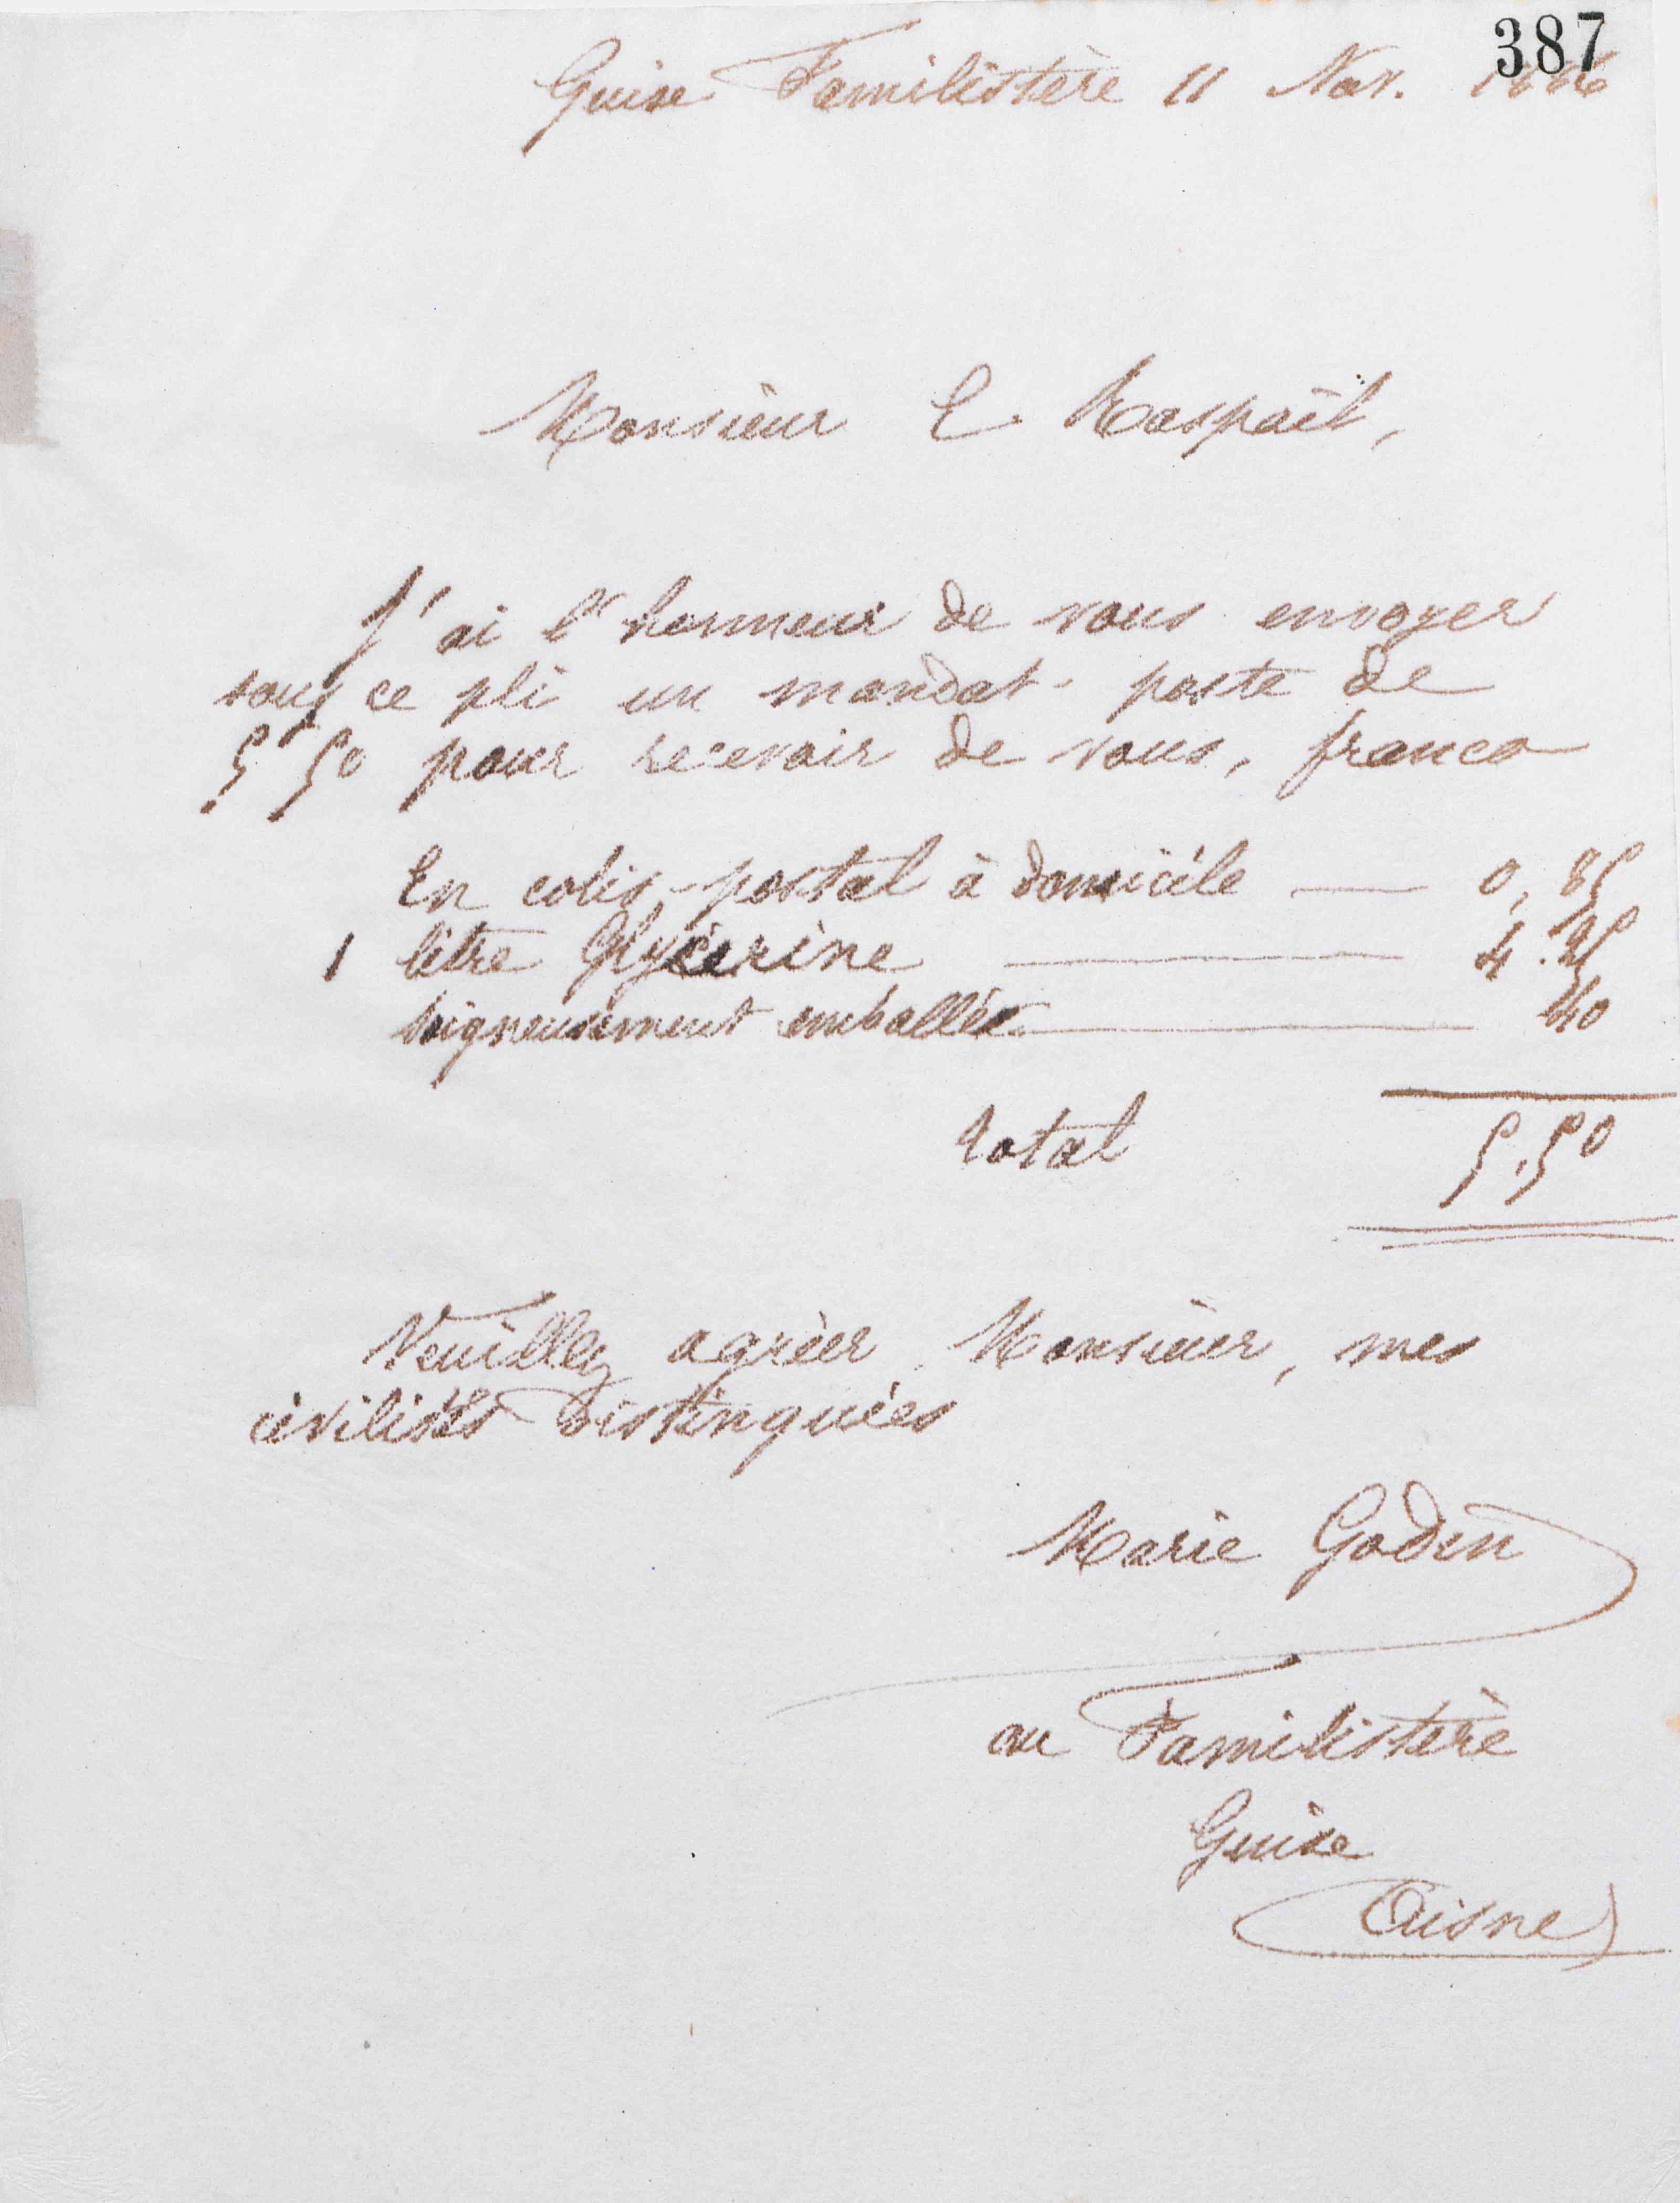 387
Guise Familistère 11 Nov. 1886
Monsieur E. Raspail,
J'ai l'honneur de vous envoyer
sous ce pli un mandat-poste de
5f50 pour recevoir de vous, franco
En colis-postal à domicile — 0,85
1 litre Glycérine — 4.25
soigneusement emballée — 40
total 5.50
Veuillez agréer Monsieur, mes
civilités distinguées
Marie Godin
au Familistère
Guise
(Aisne)